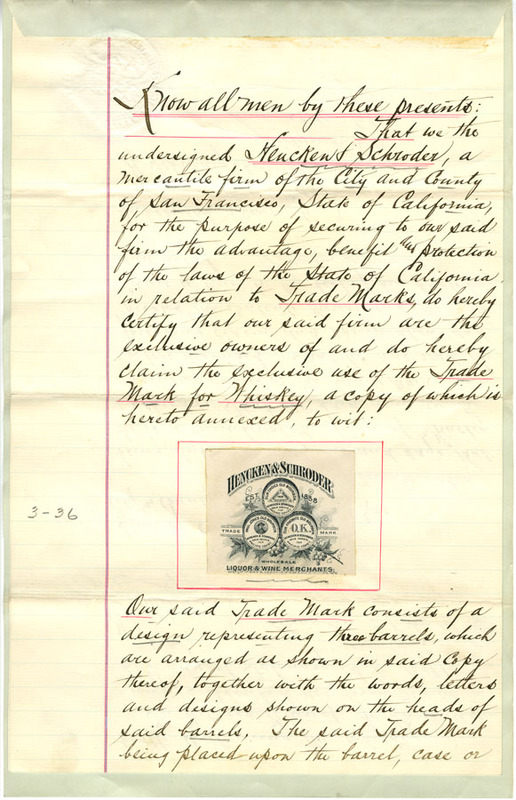 Know all men by these presents:
That we the
undersigned Hencken & Schroder, a
mercantile firm of the City and County
of San Francisco, State of California,
for the purpose of securing to our said
firm the advantage, benefit and protection
of the laws of the State of California
in relation to Trade Marks, do hereby
certify that our said firm are the
exclusive owners of and do hereby
claim the exclusive use of the Trade
Mark for Whiskey, a copy of which is
hereto annexed, to wit:
HENCKEN & SCHRODER
EST. 1858
O.K.
TRADE MARK
WHOLESALE
LIQUOR & WINE MERCHANTS
3-36
Our said Trade Mark consists of a
design representing three barrels, which
are arranged as shown in said copy
thereof, together with the words, letters
and designs shown on the heads of
said barrels. The said Trade Mark
being placed upon the barrel, case or